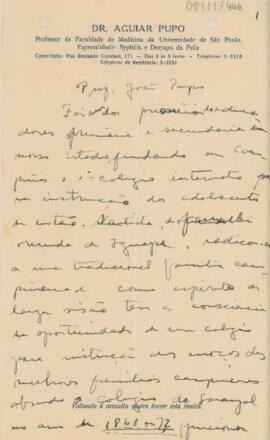 CMP1.1.8.446
1
DR. AGUIAR PUPO
Professor da Faculdade de Medicina da Universidade de São Paulo.
Especialidade: Syphilis e Doenças da Pelle
Consultorio: Rua Benjamin Constant, 171 - Das 3 ás 5 horas - Telephone: 2-2319
Telephone da Residencia: 5-2251
Prof. João Pupo
Foi um dos primeiros educa
dores primario e secundario do
nosso Estado fundando em Cam
pinas o 1º colegio internato pa
ra instrução dos adolescentes
de então.
oriunda de Iguape, radicou-se
a uma tradicional familia cam
pineira, e como espirito de
larga visão tem a consciencia
da oportunidade de um colegio
para instrução dos moços das
melhores familias campineiras
abrindo o Colegio
Voltando á consulta queira trazer esta receita.
no ano de 1868 a 72